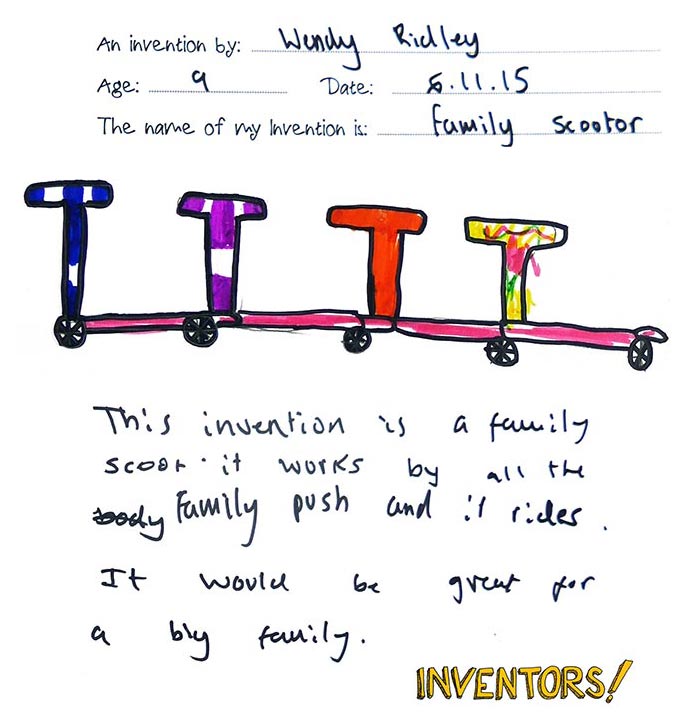 An invention by: Wendy Ridley
Age: 9 Date: 5.11.15
The name of my Invention is: family scootor
This invention is a family
scoot. it works by all the
body Family push and it rides.
It would be great for
a big family.
INVENTORS!